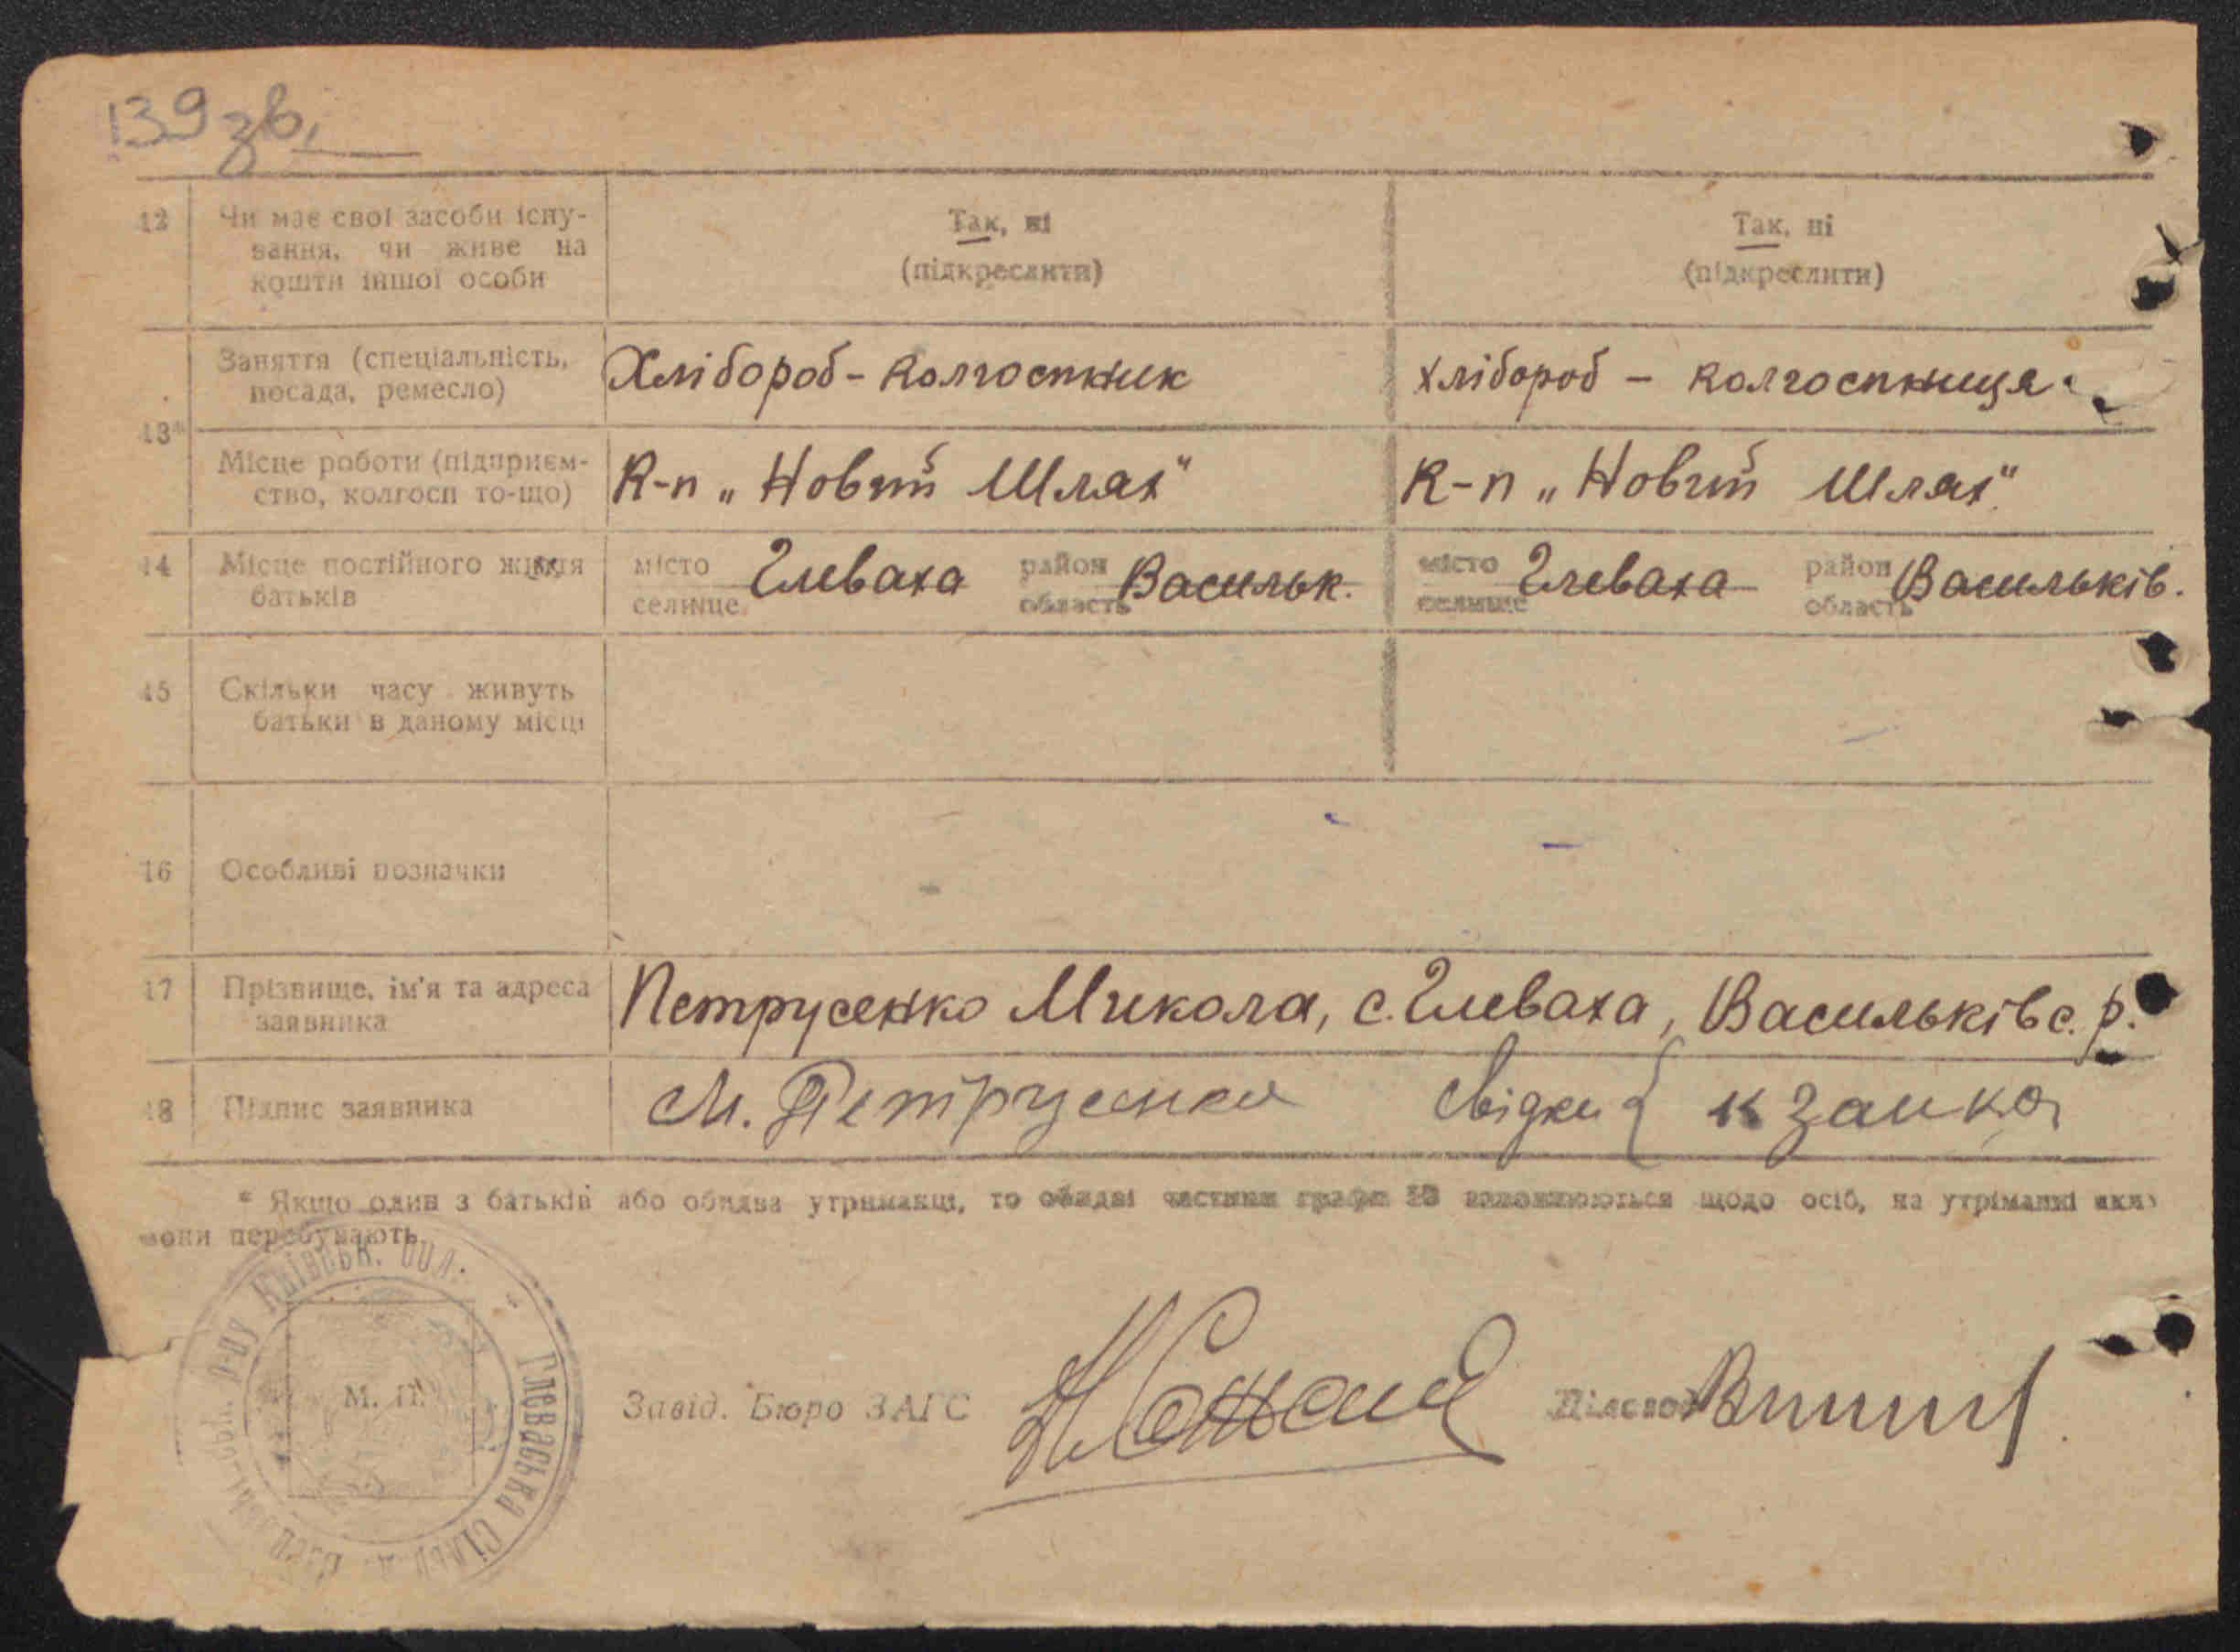 139 зв.
12 Чи має свої засоби існу- Так, ні Так, ні
вання, чи живе на (підкреслити) (підкреслити)
кошти іншої особи
Заняття (спеціальність, Хлібороб - колгоспник хлібороб - колгоспниця
посада, ремесло)
13*
Місце роботи (підприєм- К-п „Новий Шлях" К-п „Новий Шлях"
ство, колгосп то-що)
14 Місце постійного життя місто Глеваха район Васильк. місто Глеваха район Васильків.
батьків селище область селище область
15 Скільки часу живуть
батьки в даному місці
16 Особливі позначки
17 Прізвище, ім'я та адреса Петрусенко Микола, с. Глеваха, Васильківс. р.
заявника
18 Підпис заявника М. Петрусенко свідки { к Заика
* Якщо один з батьків або обидва утриманці, то обидві частини графи 13 заповнюються щодо осіб, на утріманні яких
вони перебувають.
Київськ. обл. * Глеваська сільр
М. П.
Завід. Бюро ЗАГС Діловод